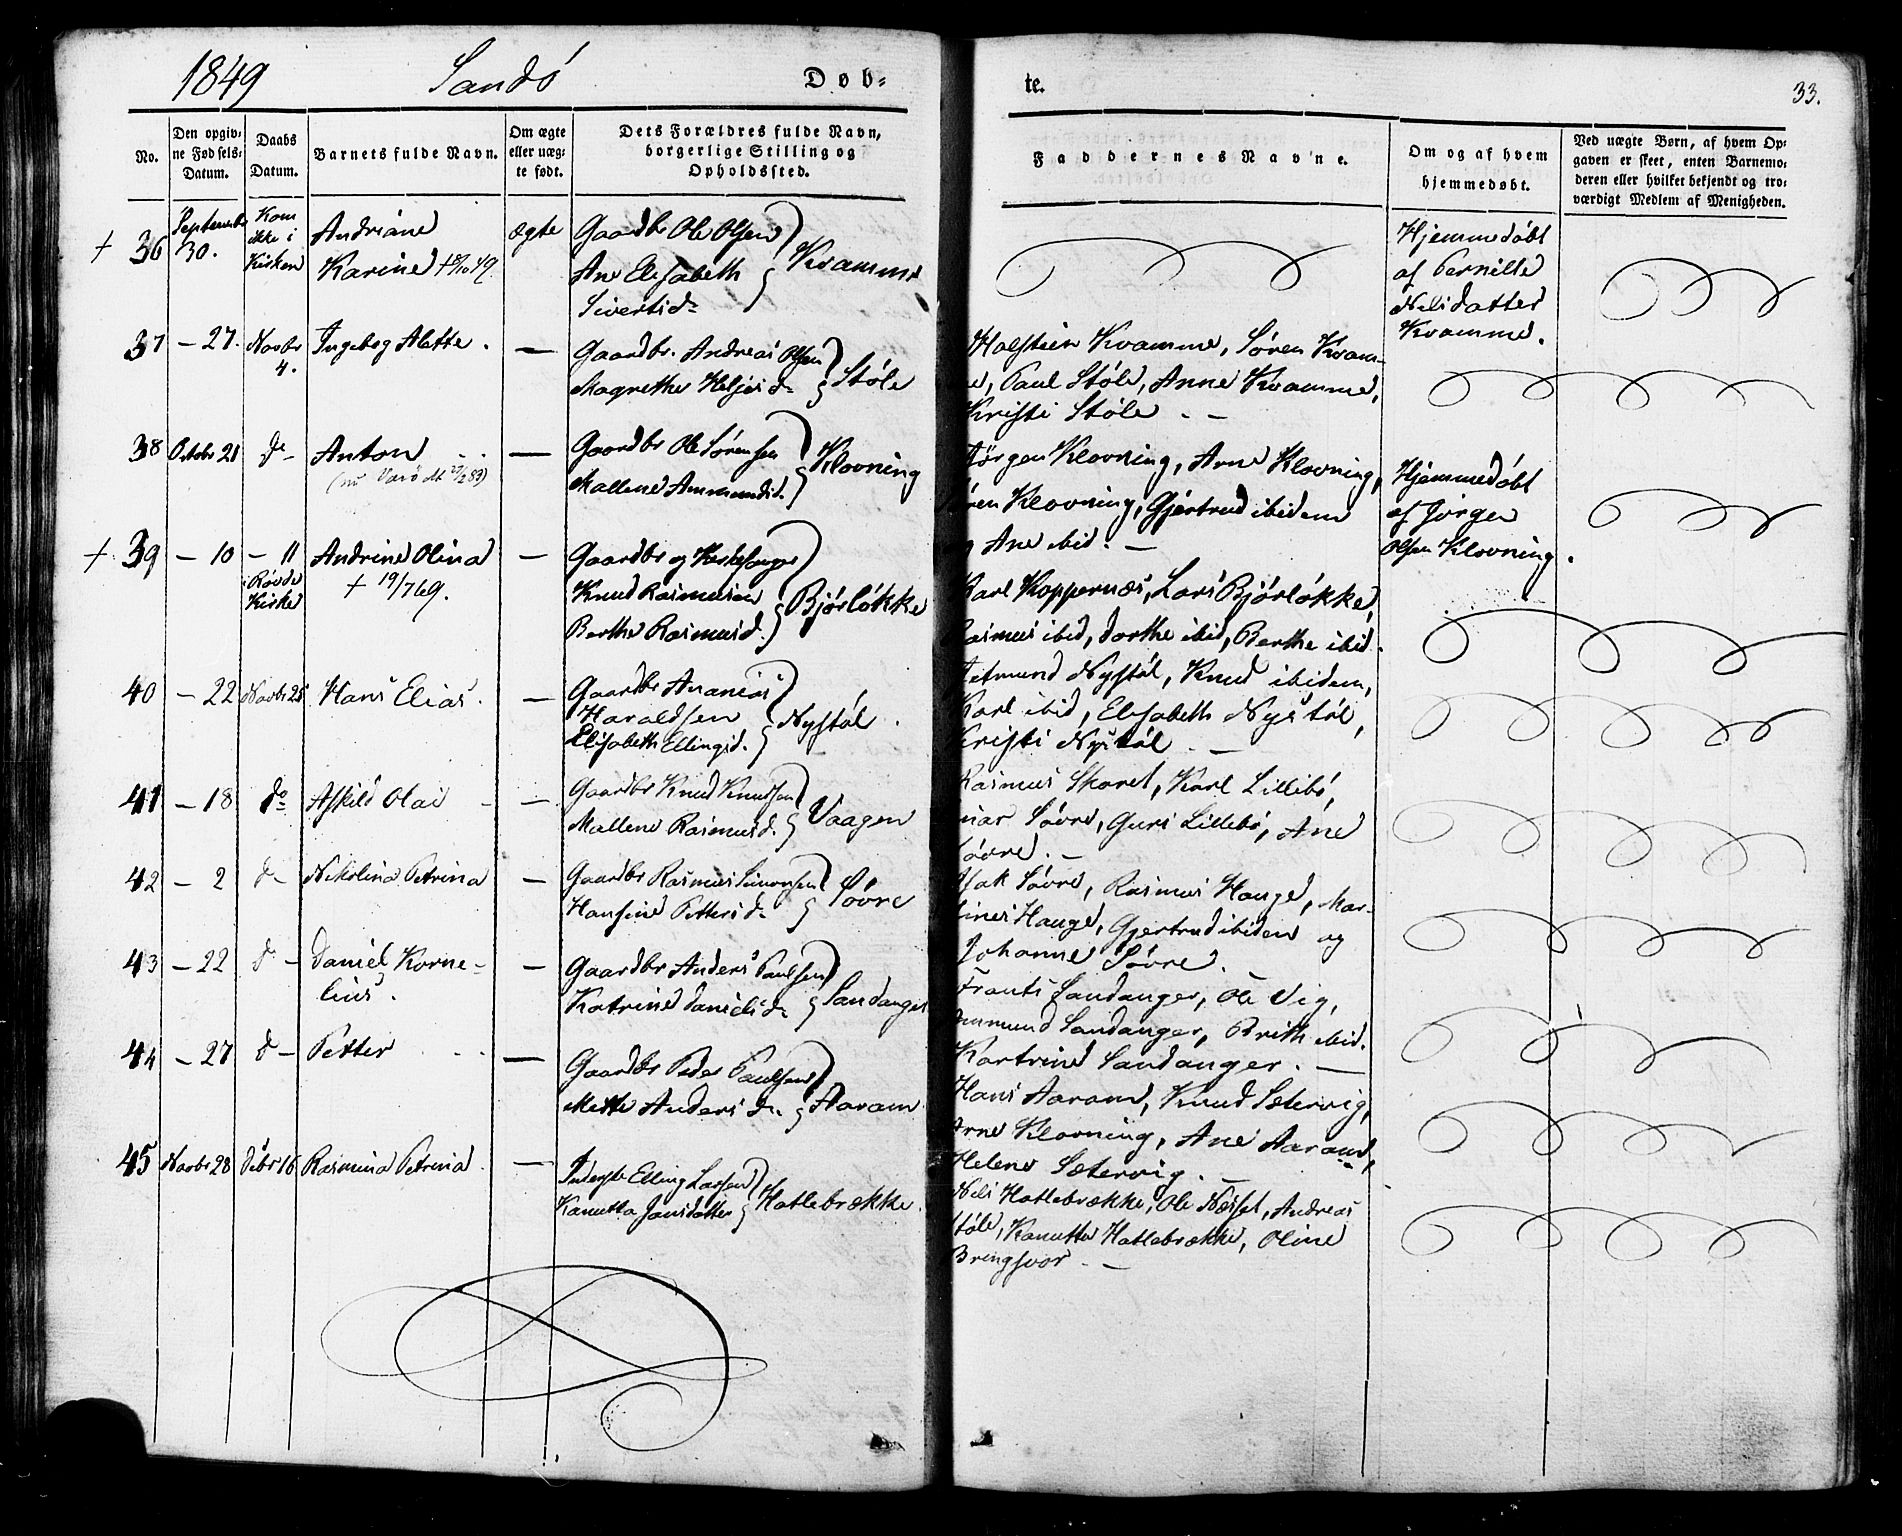 1849 Sandø Døb=
te. 33.
No.
Den opgiv=
ne Fødsels=
Datum.
Daabs
Datum.
Barnets fulde Navn.
Om ægte
eller uæg=
te født.
Dets Forældres fulde Navn,
borgerlige Stilling og
Opholdssted.
Faddernes Navne.
Om og af hvem
hjemmedøbt.
Ved uægte Børn, af hvem Op=
gaven er skeet, enten Barnemo=
deren eller hvilket bekjendt og tro=
værdigt Medlem af Menigheden.
† 36
September
30.
Kom
ikke i
Kirken
Andriane
Karine
ægte
Gaardbr Ole Olsen
Ane Elisabeth
Sivertsd.
Kvamme
Hjemmedøbt
af Pernille
Nilsdatter
Kvamme.
37 — 27.
Novbr
4.
Ingebog Alette.
—
Gaardbr. Andreas Olsen
Magrethe Heljesd.
Støle
Holstein Kvamme, Søren Kvam-
me, Paul Støle, Anne Kvamme,
Kristi Støle. —
38 Octobr 21 do
Anton
—
Gaardbr Ole Sørensen
Mallene Ammundsd.
Klovning
Jørgen Klovning, Arne Klovning,
Søren Klovning, Gjertrud ibidem
og Ane ibid. —
Hjemmedøbt
af Jørgen
Olsen Klovning.
† 39 — 10 — 11
Røvde
Kirke
Andrine Olina
† 19/7 69.
—
Gaardbr og Kirkesanger
Knud Rasmusen
Berthe Rasmusd.
Bjørløkke
Karl Koppernæs, Lars Bjørløkke,
Rasmus ibid, Dorthe ibid, Berthe ibid.
40 — 22 Novbr 25 Hans Elias.
—
Gaardbr Ananias
Haraldsen
Elisabeth Ellingsd.
Nystøl.
Knud ibidem,
Karl ibid, Elisabeth Nystøl,
Kristi Nystøl. —
41 — 18 do Askild Olai
—
Gaardbr Knud Knudsen
Mallene Rasmusd.
Vaagen
Rasmus Skaret, Karl Lillebø,
Søvre, Guri Lillebø, Ane
Søvre. —
42 — 2 d— Nikolina Petrina
—
Gaardbr Rasmus Simonsen
Hansine Pettersd.
Søvre
Isak Søvre, Rasmus Hauge, Mar-
tines Hauge, Gjertrud ibidem og
Johanne Søvre.
43 — 22 d—
Daniel Korne-
lius.
—
Gaardbr Anders Paulsen
Katrine Danielsd.
Sandanger
Frants Sandanger, Ole Vig,
Ammund Sandanger, Brith ibid.
Kartrine Sandanger. —
44 — 27 d— Petter
—
Gaardbr Peder Paulsen
Mette Andersd.
Aaram
Hans Aaram, Knud Sætervig,
Arne Klovning, Ane Aaram,
Helene Sætervig. —
45 Novbr 28 Debr 16 Rasmina Petrina
—
Inderste Elling Larsen
Kanutta Jonsdatter
Hatlebrække.
Nils Hatlebrække, Ole Næsset, Andreas
Støle, Kanutte Hatlebrække, Oline
Bringsvor. —